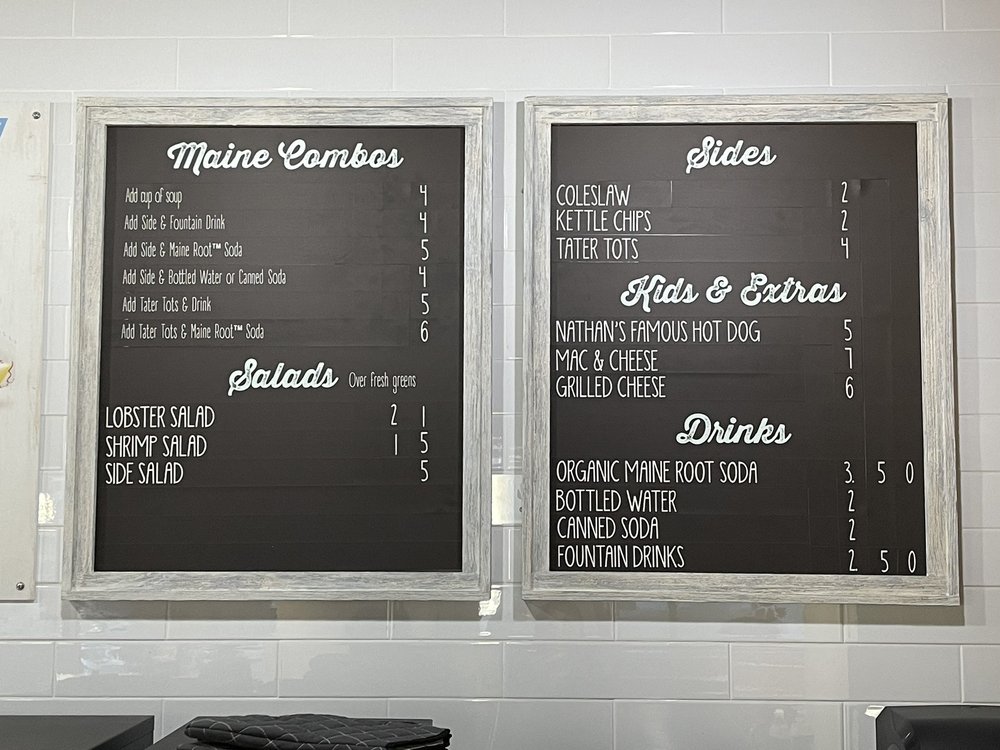 Maine Combos
Add cup of soup 4
Add Side & Fountain Drink 4
Add Side & Maine Root™ Soda 5
Add Side & Bottled Water or Canned Soda 4
Add Tater Tots & Drink 5
Add Tater Tots & Maine Root™ Soda 6
Salads Over fresh greens
LOBSTER SALAD 2 1
SHRIMP SALAD 1 5
SIDE SALAD 5
Sides
COLESLAW 2
KETTLE CHIPS 2
TATER TOTS 4
Kids & Extras
NATHAN'S FAMOUS HOT DOG 5
MAC & CHEESE 7
GRILLED CHEESE 6
Drinks
ORGANIC MAINE ROOT SODA 3. 5 0
BOTTLED WATER 2
CANNED SODA 2
FOUNTAIN DRINKS 2 5 0